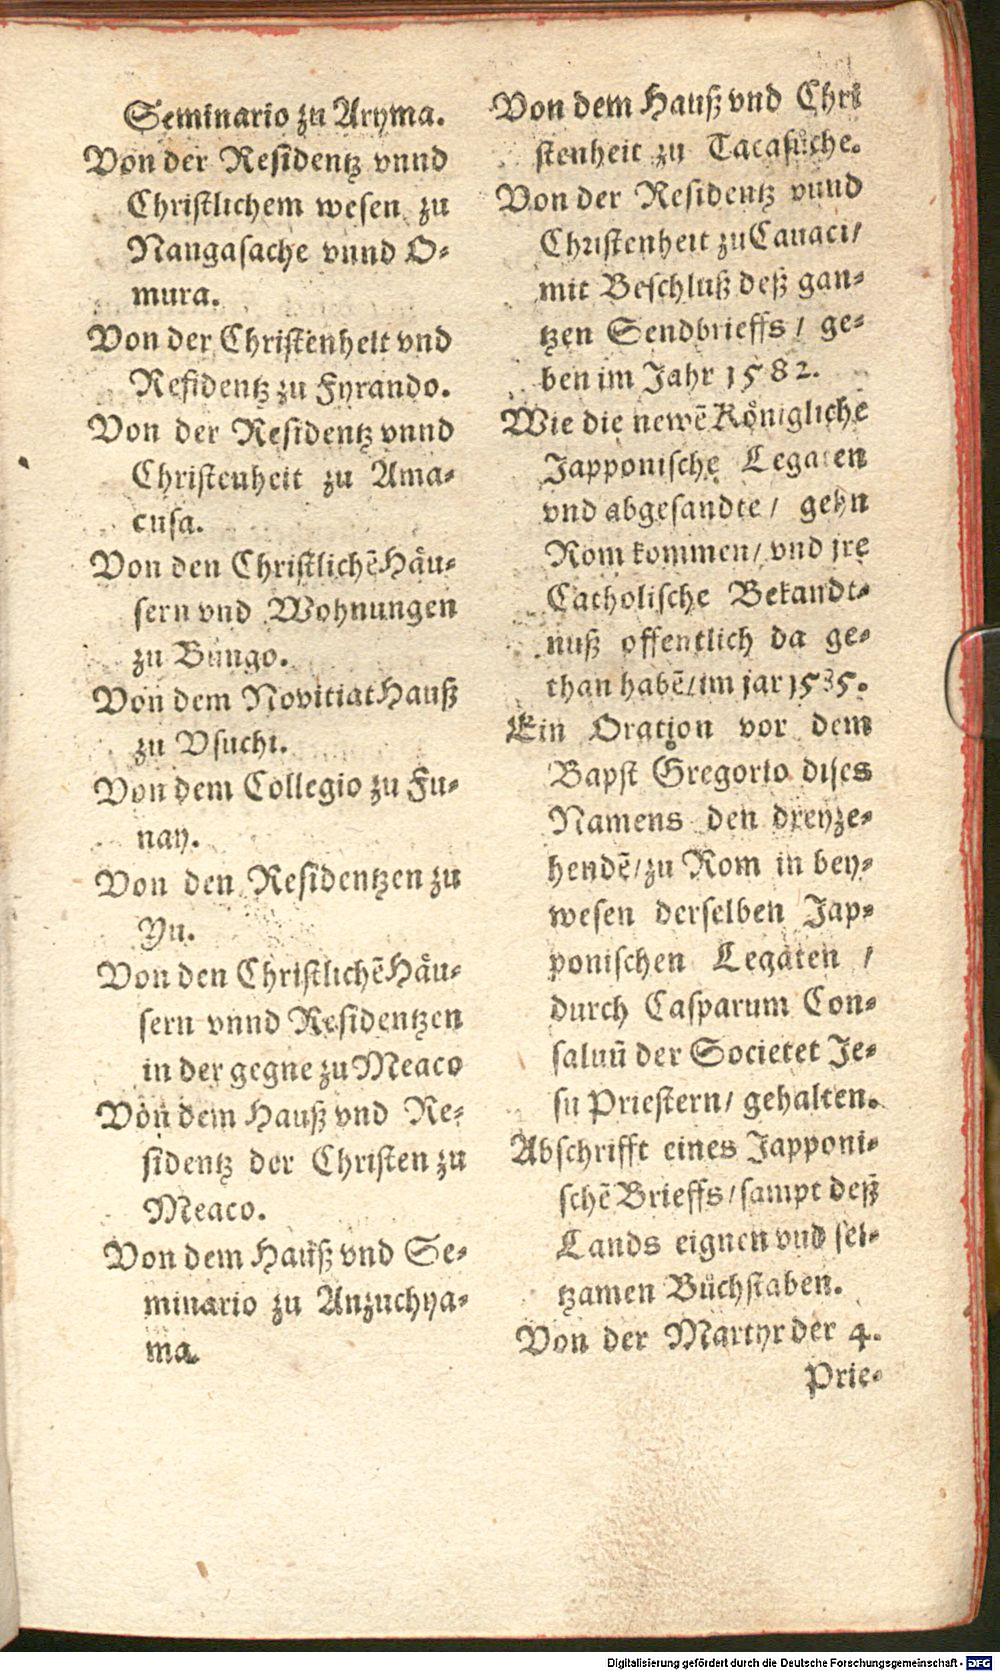 Seminario zu Aryma.
Von der Residentz vnnd
Christlichem wesen zu
Nangasache vnnd O-
mura.
Von der Christenheit vnd
Residentz zu Fyrando.
Von der Residentz vnnd
Christenheit zu Ama-
cusa.
Von den Christlichē Häu-
sern vnd Wohnungen
zu Bungo.
Von dem Novitiat Hauß
zu Vsuchi.
Von dem Collegio zu Fu-
nay.
Von den Residentzen zu
Yu.
Von den Christlichē Häu-
sern vnnd Residentzen
in der gegne zu Meaco
Von dem Hauß vnd Re-
sidentz der Christen zu
Meaco.
Von dem Hauß vnd Se-
minario zu Anzuchya-
ma.
Von dem Hauß vnd Chri
stenheit zu Tacasuche.
Von der Residentz vnnd
Christenheit zu Cauaci/
mit Beschluß deß gan-
tzen Sendbrieffs / ge-
ben im Jahr 1582.
Wie die newē Königliche
Japponische Legaten
vnd abgesandte / gehn
Rom kommen / vnd jre
Catholische Bekandt-
nuß offentlich da ge-
than habē / im jar 1585.
Ein Oration vor dem
Bapst Gregorio dises
Namens den dreyze-
hendē / zu Rom in bey-
wesen derselben Jap-
ponischen Legaten /
durch Casparum Con-
saluū der Societet Je-
su Priestern / gehalten.
Abschrifft eines Japponi-
schē Brieffs / sampt deß
Lands eignen vnd sel-
tzamen Büchstaben.
Von der Martyr der 4.
Prie-
Digitalisierung gefördert durch die Deutsche Forschungsgemeinschaft - DFG